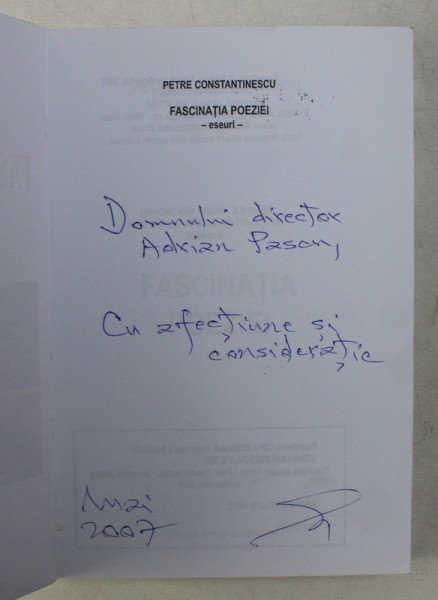 PETRE CONSTANTINESCU
FASCINAȚIA POEZIEI
– eseuri –
Domnului director
Adrian
Cu afecțiune și
considerație
Mai
2007
FASCINAȚIA